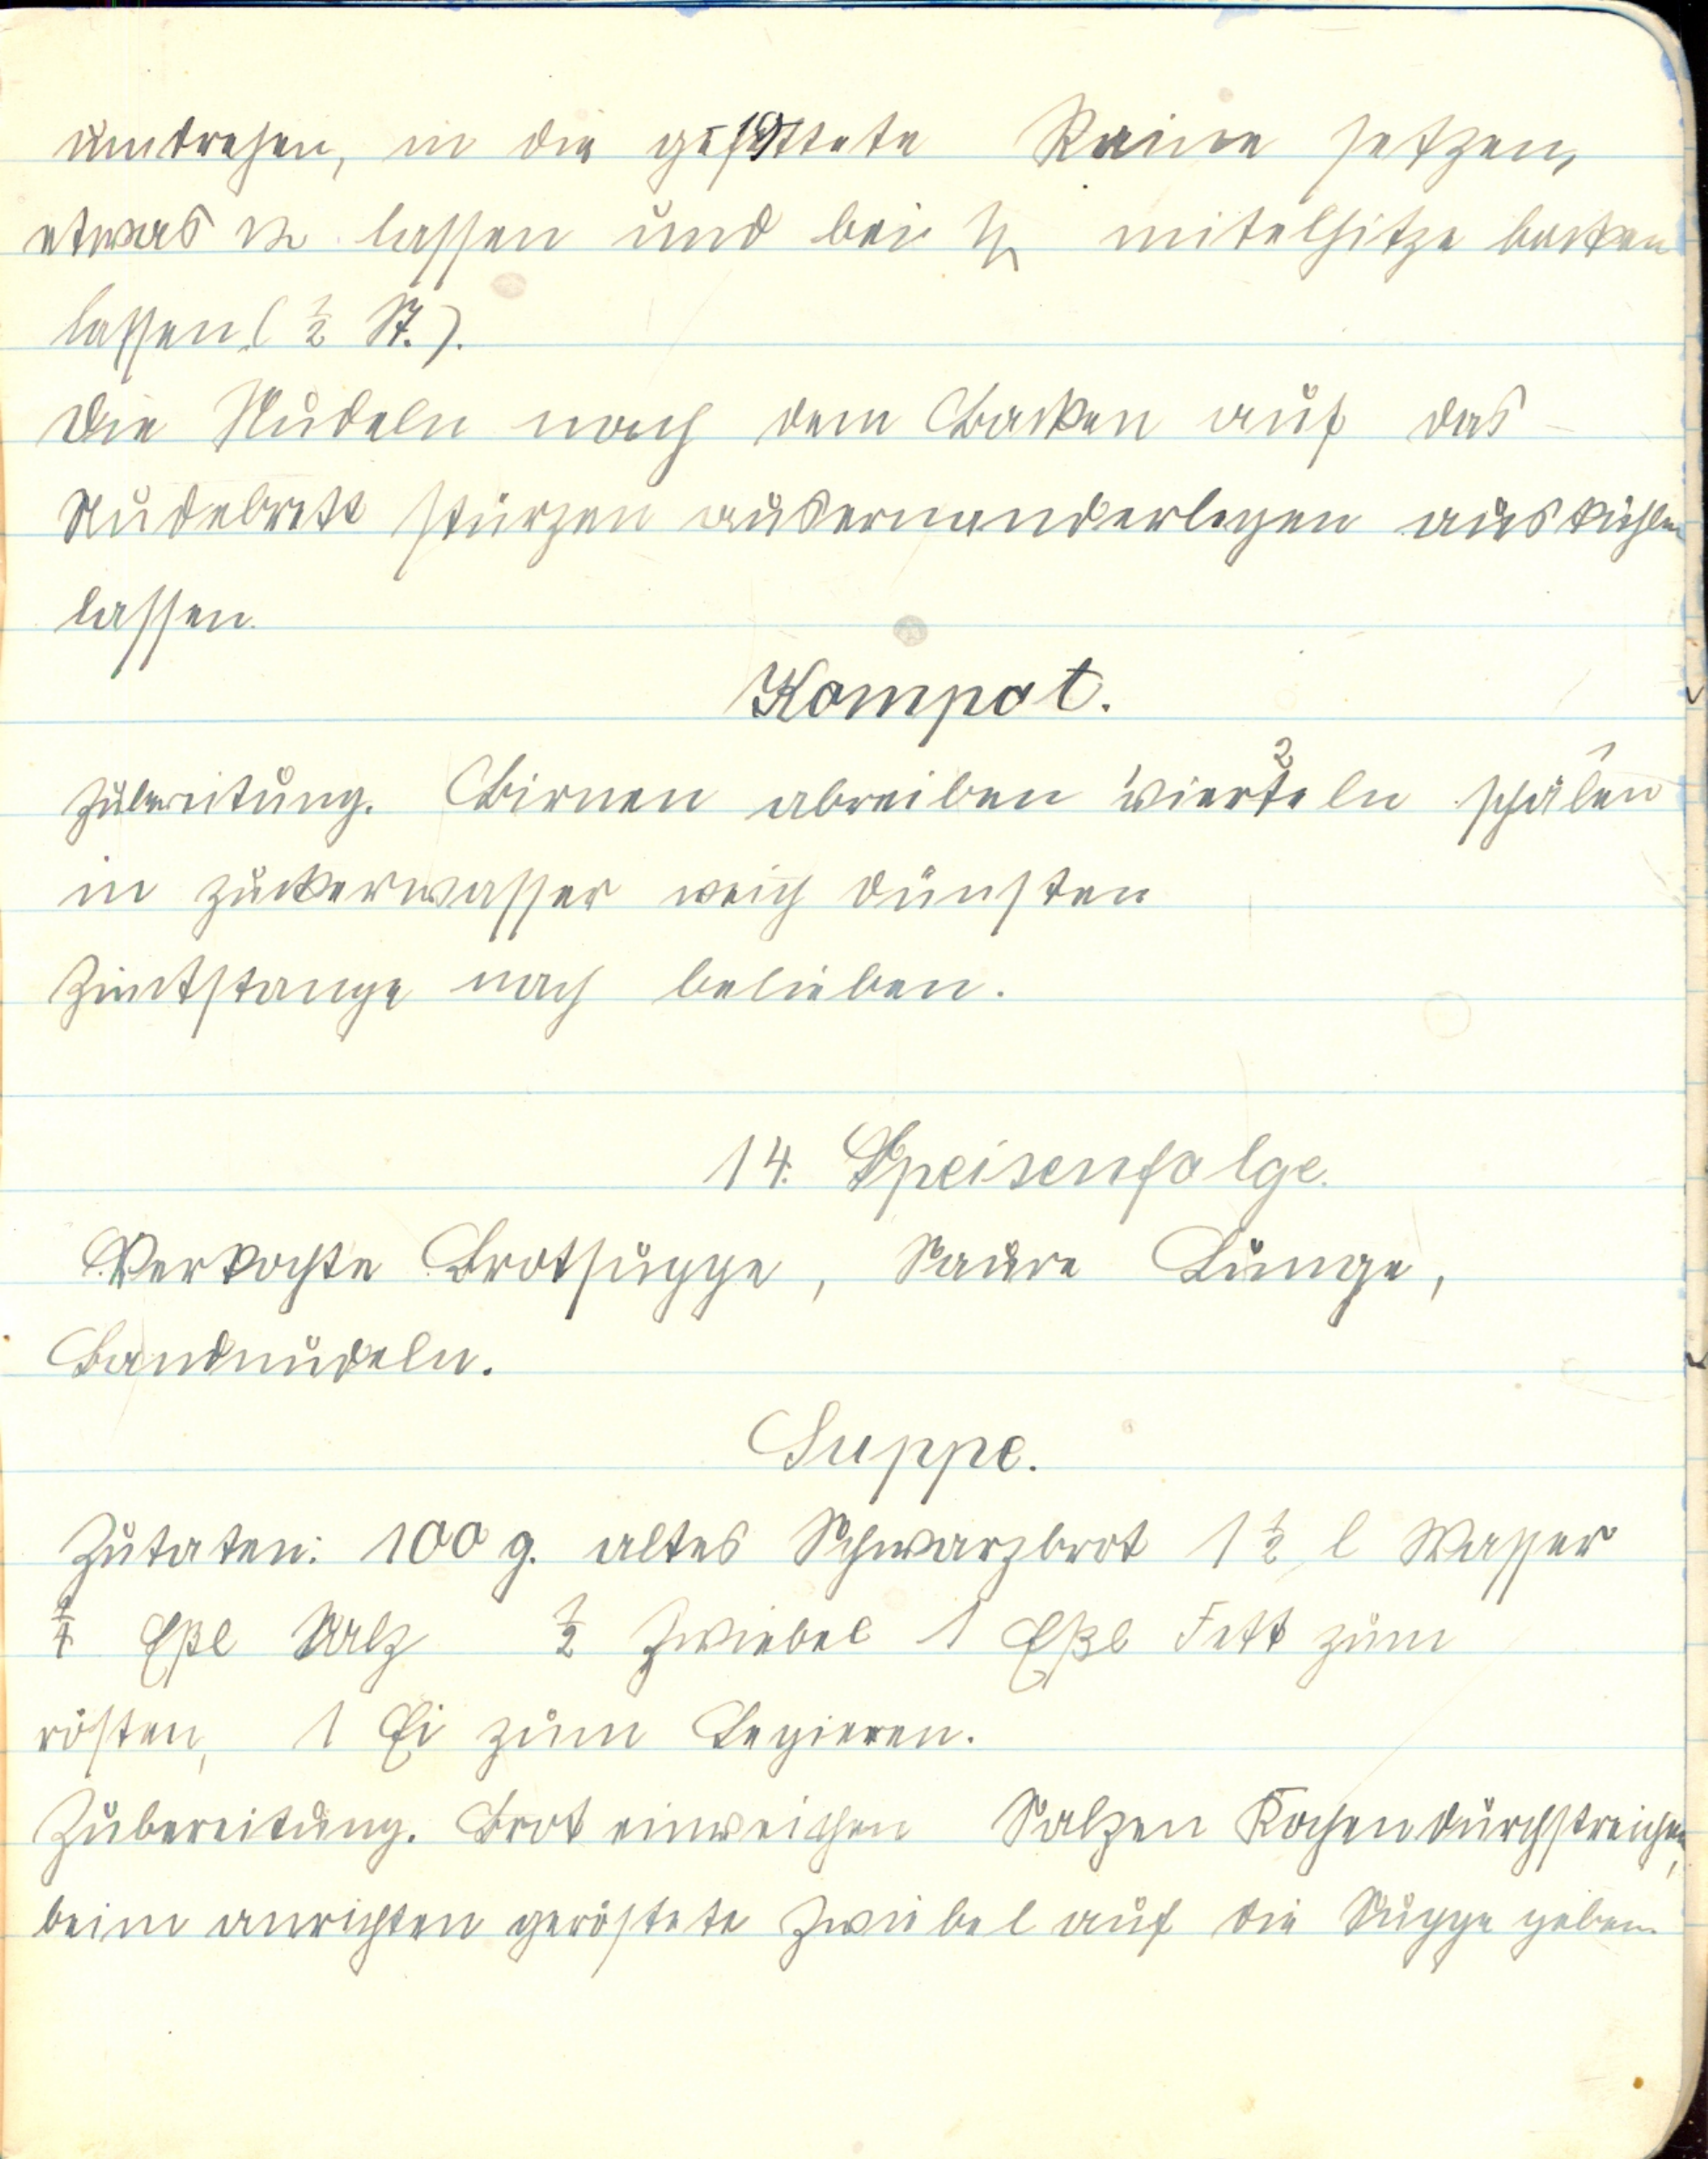 umdrehen, in die gefettete Raine setzen,
etwas lassen und bei mitelhitze backen
lassen (½ St.).
Die Nudeln nach dem Backen auf das
Nudelbrett stürzen auseinanderlegen auskühlen
lassen.
Kompot.
Zubereitung. Birnen abreiben vierteln schälen
in Zuckerwasser weich dünsten
Zimtstange nach belieben.
14. Speisenfolge.
Verkochte Brotsuppe, Saure Lunge,
Bandnudeln.
Suppe.
Zutaten: 100 g. altes Schwarzbrot 1 ½ l Wasser
Eßl Salz ½ Zwiebel 1 Eßl Fett zum
rösten, 1 Ei zum Legieren.
Zubereitung. Brot einweichen Salzen Kochen durchstreichen,
beim anrichten geröstete Zwiebel auf die Suppe geben.